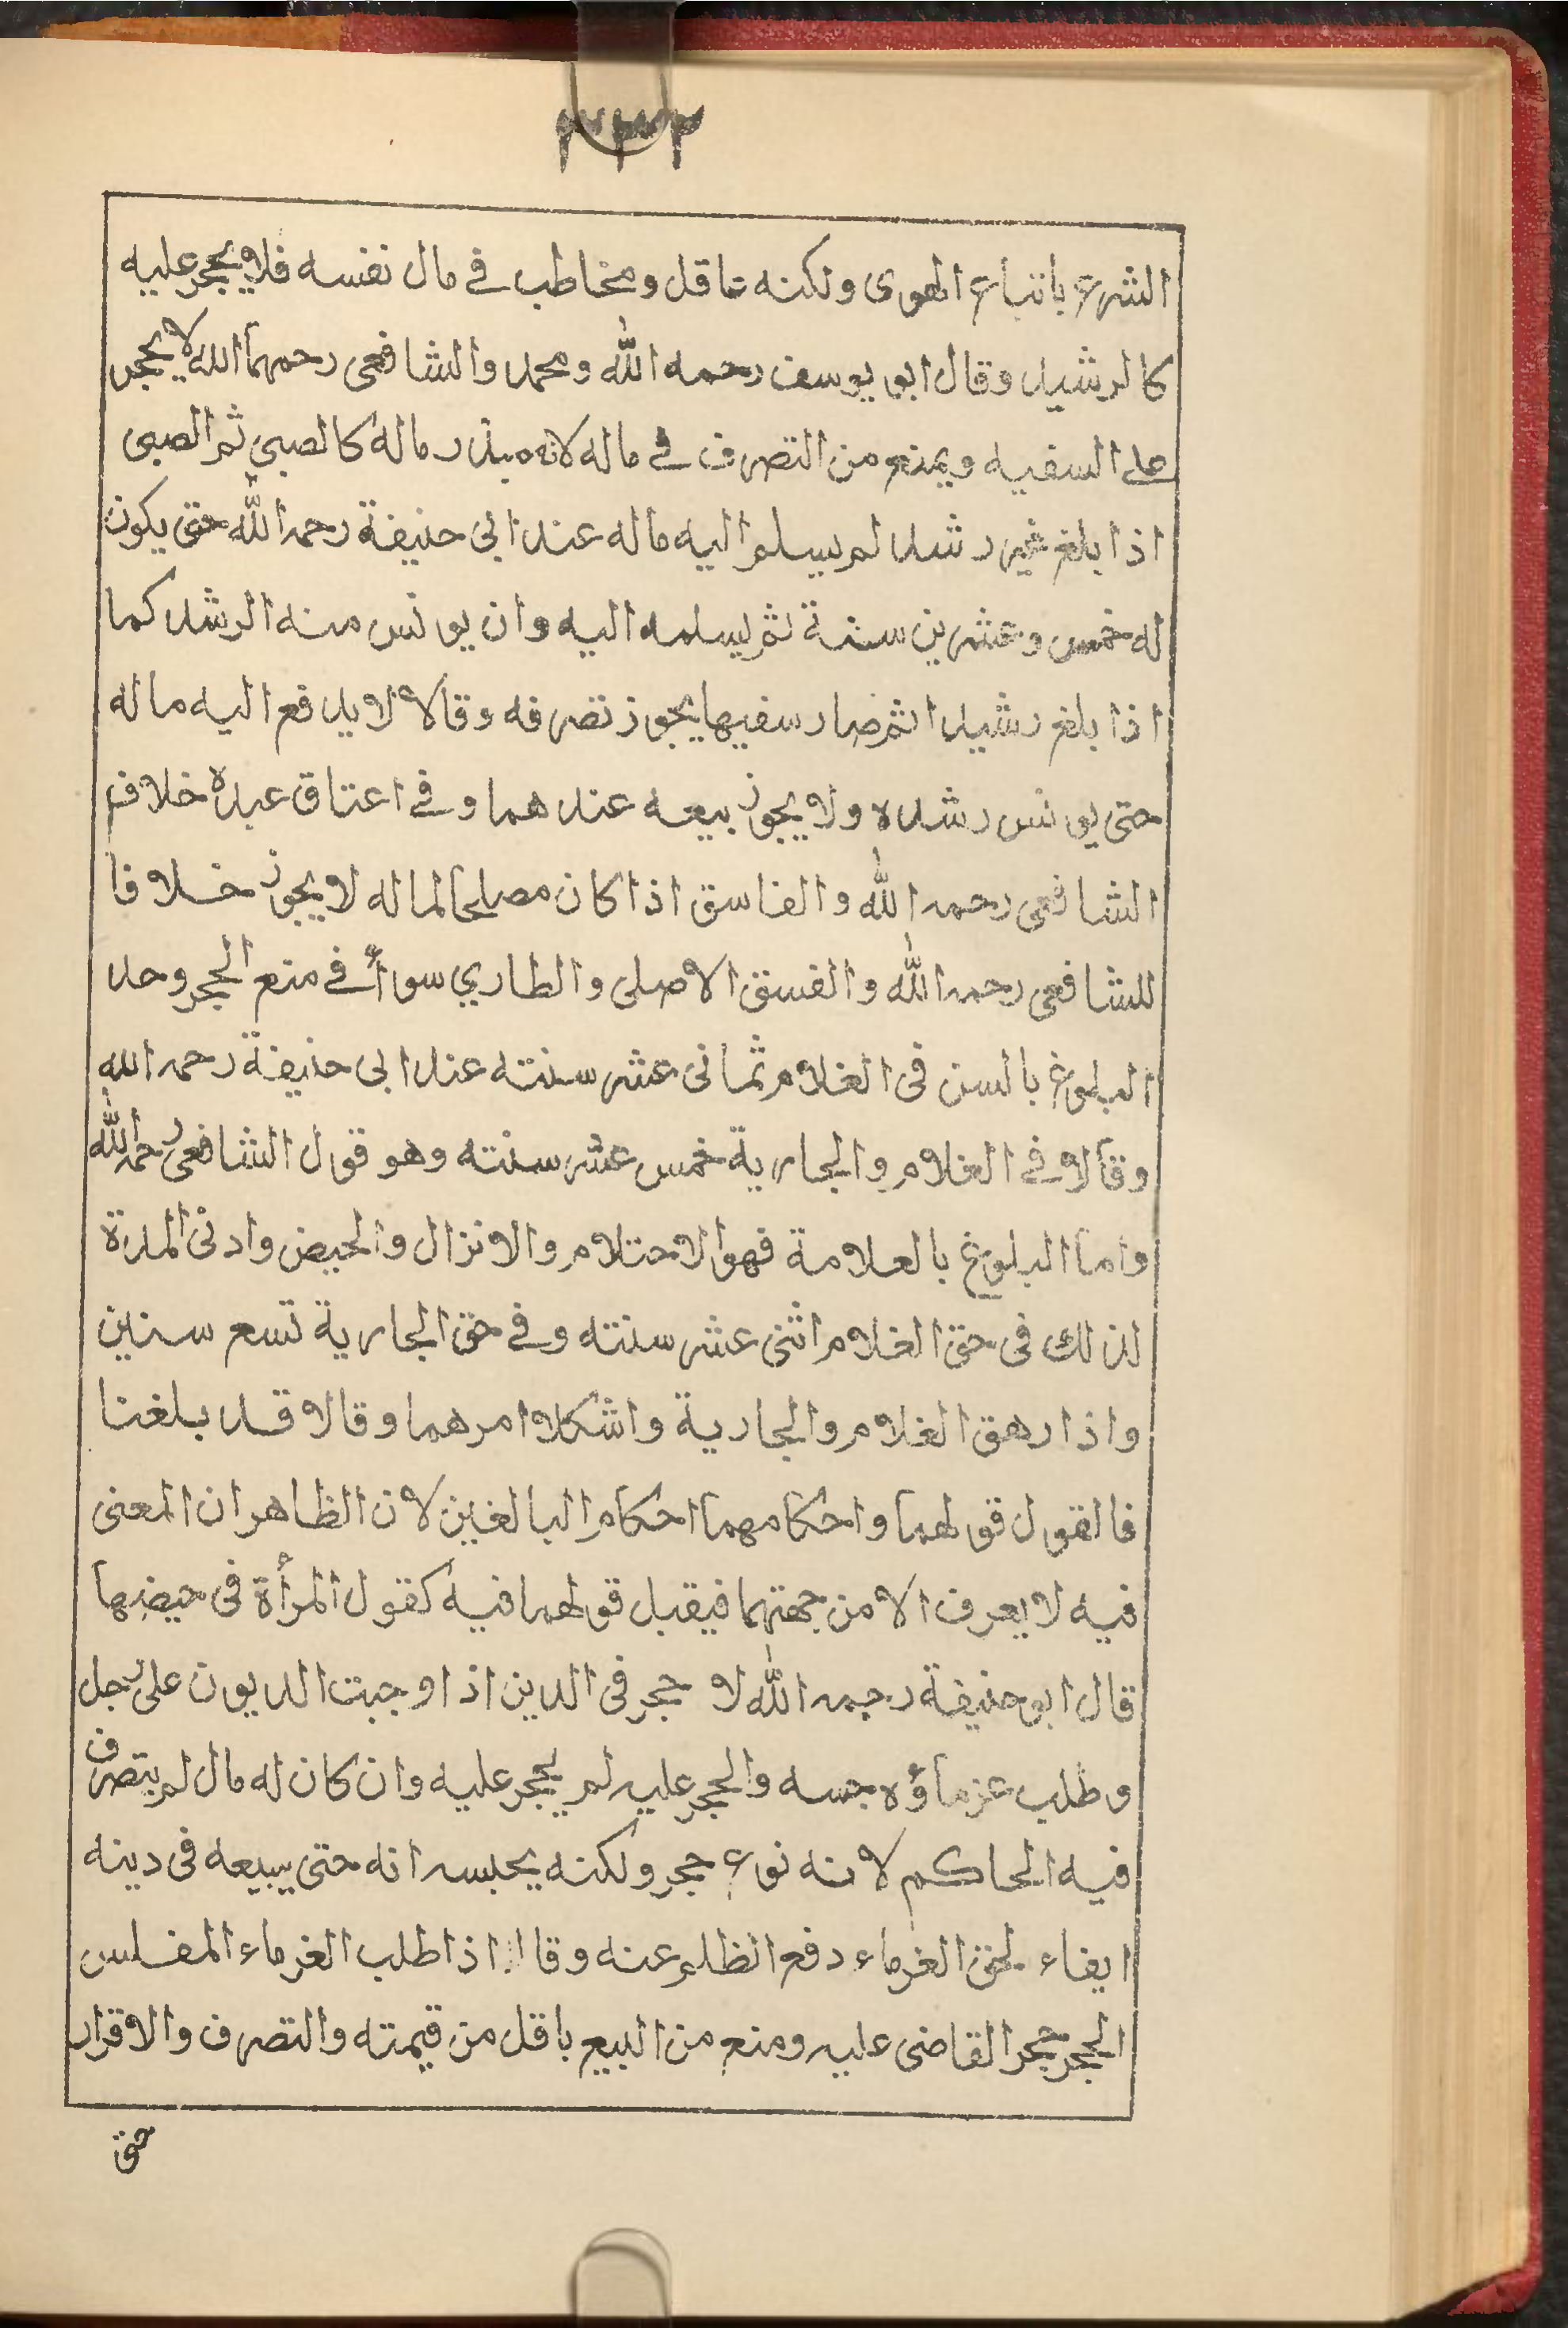 الشرع باتباع الهوى ولكنه عاقل ومخاطب في مال نفسه فلا يحجر عليه
كالرشيد وقال ابو يوسف رحمه الله ومحمد والشافعى رحمهما الله لا يحجر
على السفيه ويمنع من التصرف في ماله لانه مبذر ماله كالصبي ثم الصبى
اذا بلغ غير رشد لم يسلم اليه ماله عند ابى حنيفة رحمه الله حتى يكون
له خمس وعشرين سنة ثم يسلمه اليه وان يونس منه الرشد كما
اذا بلغ رشيدا ثم صار سفيها يجوز تصرفه وقالا لا يدفع اليه ماله
حتى يونس رشده ولا يجوز بيعه عندهما وفي اعتاق عبده خلاف
الشافعى رحمه الله والفاسق اذا كان مصلحا لماله لا يجوز خلافا
للشافعى رحمه الله والفسق الاصلى والطاري سواأ في منع الحجر وحد
البلوغ بالسن فى الغلام ثمانى عشر سنته عند ابى حنيفة رحمه الله
وقالا في الغلام والجارية خمس عشر سنته وهو قول الشافعى رحمه الله
واما البلوغ بالعلامة فهو الاحتلام والانزال والحيض وادنى المدة
لذلك فى حق الغلام اثنى عشر سنته وفي حق الجارية تسع سنين
واذا رهق الغلام والجارية واشكلا امرهما وقالا قد بلغنا
فالقول قولهما واحكامهما احكام البالغين لان الظاهر ان المعنى
فيه لا يعرف الا من جهتهما فيقبل قولهما فيه كقول المرأة فى حيضها
قال ابو حنيفة رحمه الله لا حجر فى الدين اذا وجبت الديون على رجل
وطلب غزماؤه حبسه والحجر عليه لم يحجر عليه وان كان له مال لم يتصرف
فيه الحاكم لانه نوع حجر ولكنه يحبسه انه حتى يبيعه فى دينه
ايفاء لحق الغرماء دفع الظلم عنه وقالا اذا طلب الغرماء المفلس
الحجر حجر القاضى عليه ومنع من البيع باقل من قيمته والتصرف والاقرار
حتى